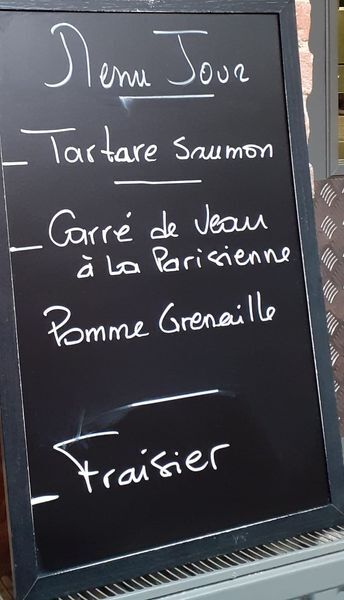 Menu Jour
- Tartare Saumon
- Carré de Veau
à La Parisienne
Pomme Grenaille
- Fraisier